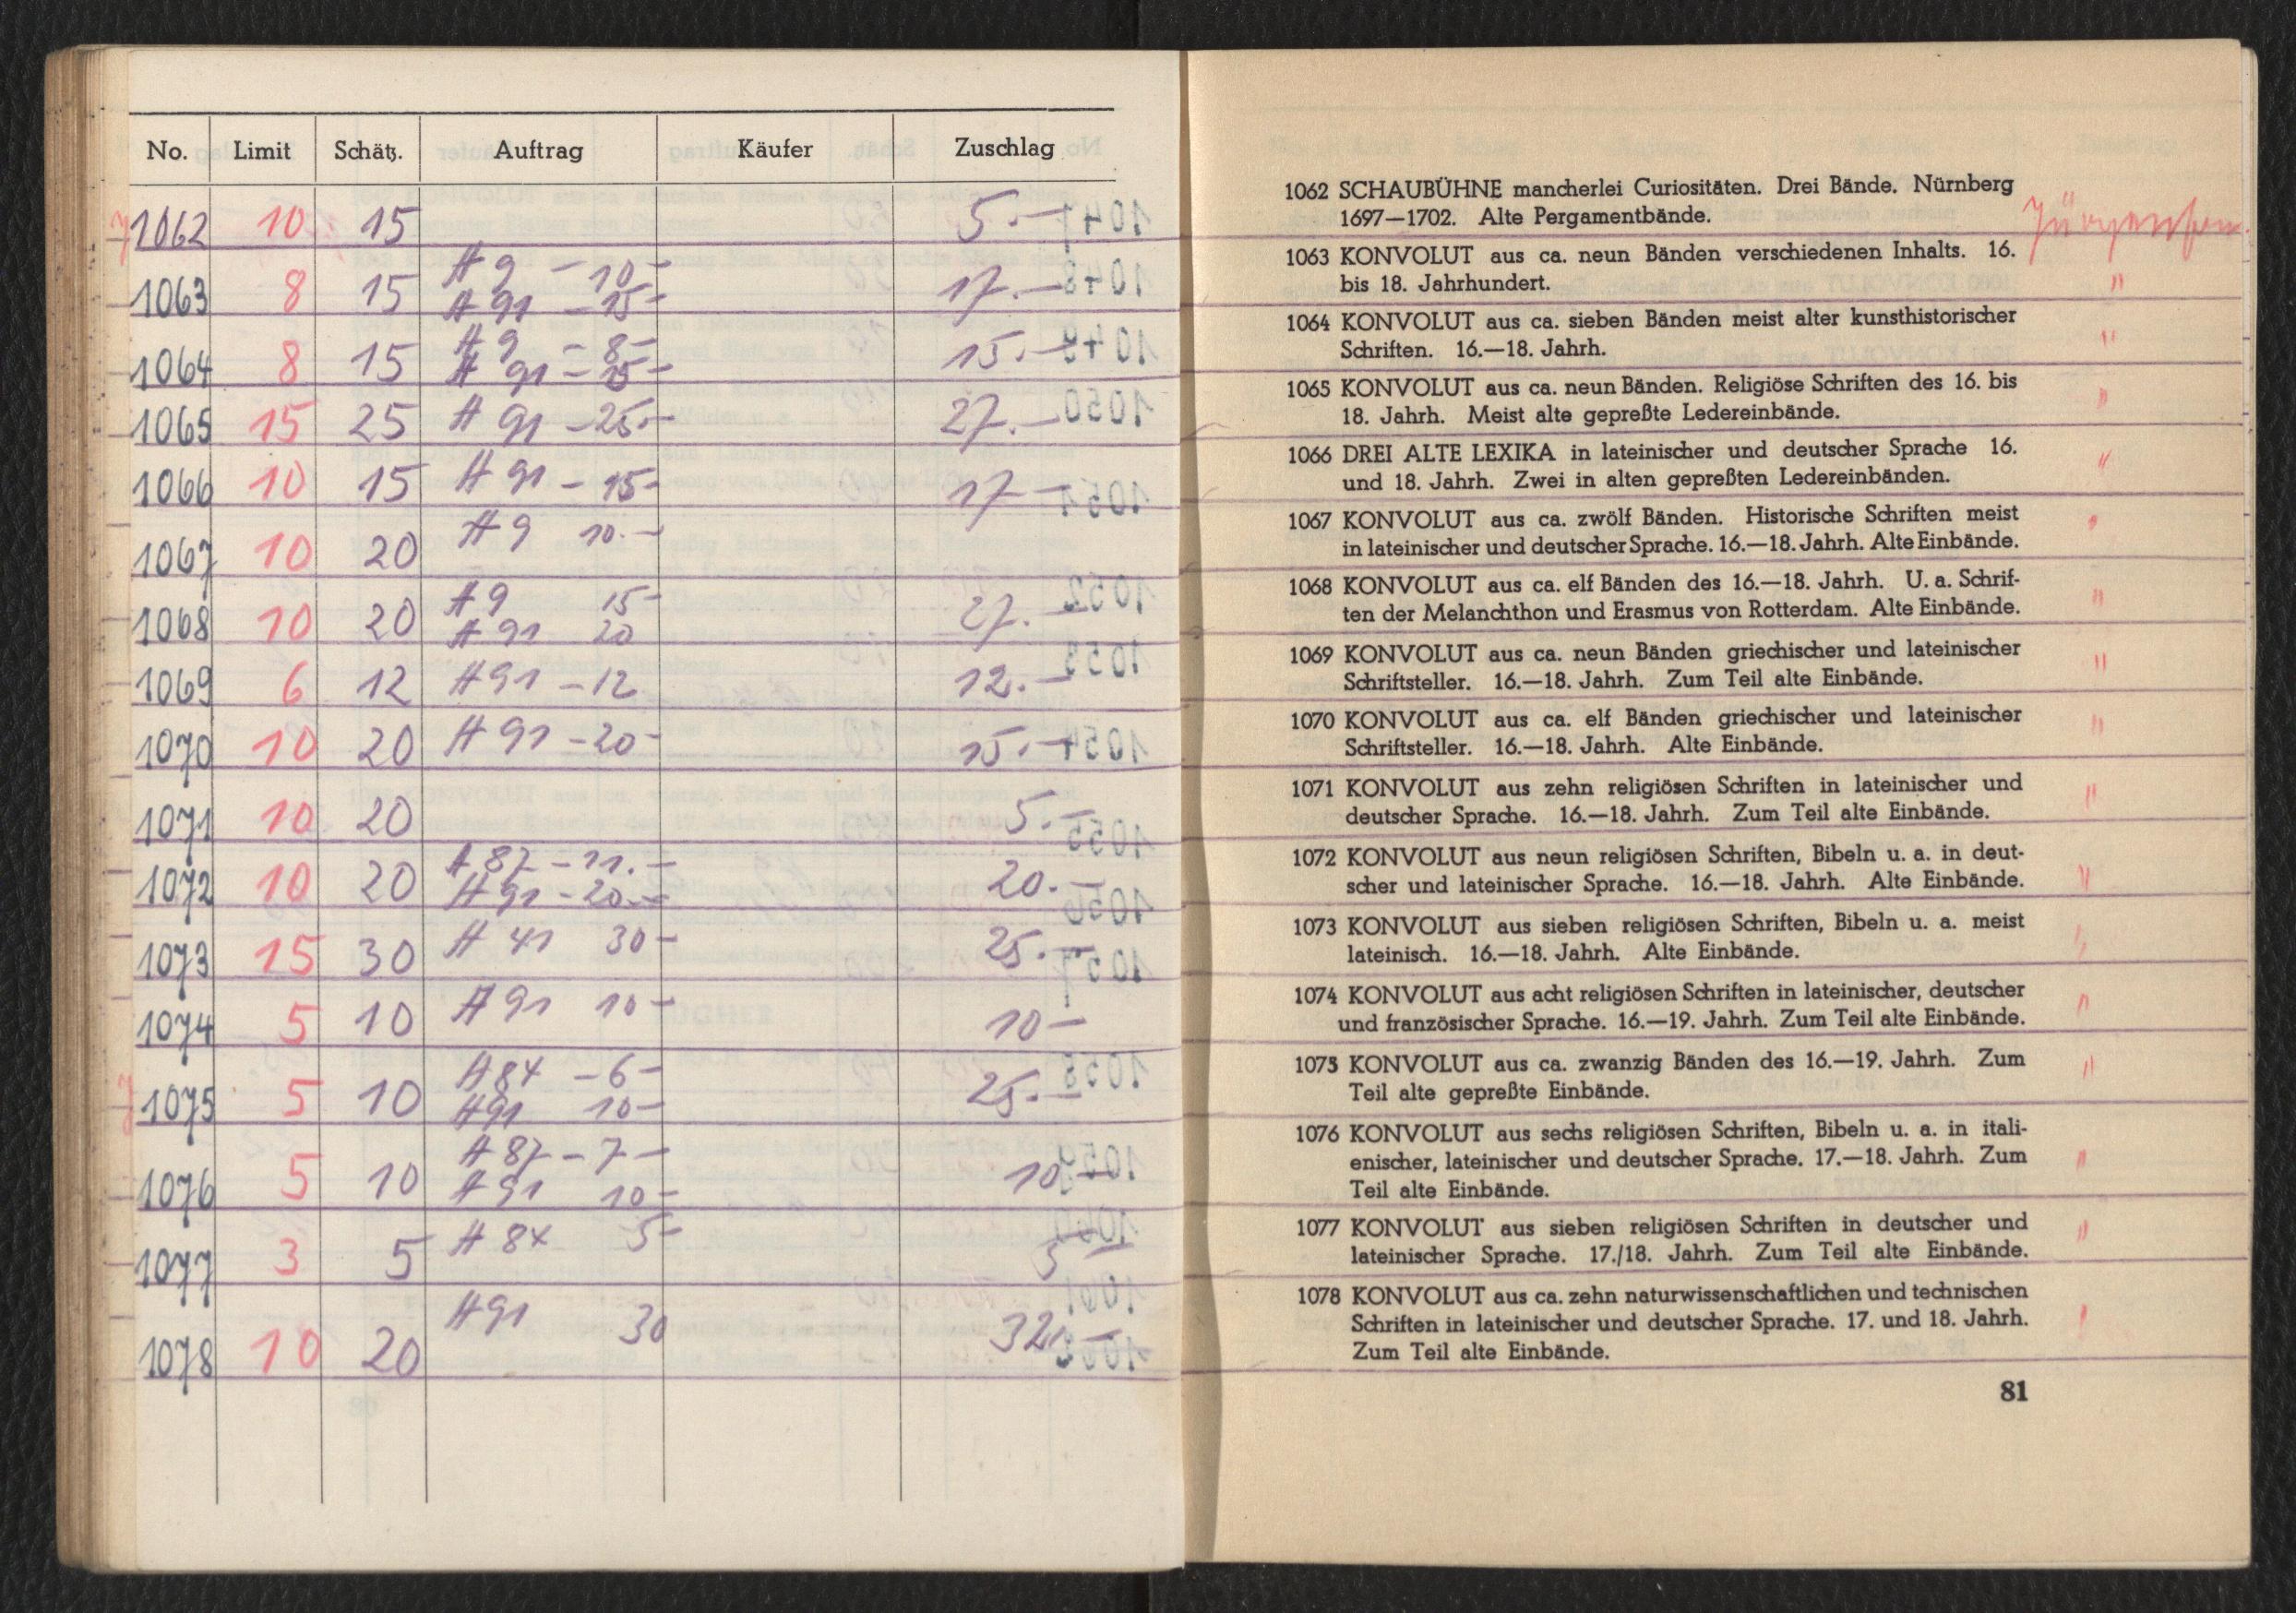 No. Limit Schätz. Auftrag Käufer Zuschlag
1062 10 15 5.-
1063 8 15 A 9 - 10-
A 91 - 15- 17.-
1064 8 15 A 9 - 8-
A 91 - 15- 15.-
1065 15 25 A 91 - 25.- 27.-
1066 10 15 A 91 - 15- 17-
1067 10 20 A 9 10.-
1068 10 20 A 9 15-
A 91 20 27.-
1069 6 12 A 91 - 12 12.-
1070 10 20 A 91 - 20- 15.-
1071 10 20 5.-
1072 10 20 A 87 - 11.-
A 91 - 20.- 20.-
1073 15 30 A 41 30- 25.-
1074 5 10 A 91 10- 10-
1075 5 10 A 84 - 6-
A 91 10- 25.-
1076 5 10 A 87 - 7-
A 91 10- 10.-
1077 3 5 A 84 5- 5-
1078 10 20 A 91 30 32.-
1062 SCHAUBÜHNE mancherlei Curiositäten. Drei Bände. Nürnberg
1697—1702. Alte Pergamentbände. Jürgensen.
1063 KONVOLUT aus ca. neun Bänden verschiedenen Inhalts. 16.
bis 18. Jahrhundert. "
1064 KONVOLUT aus ca. sieben Bänden meist alter kunsthistorischer
Schriften. 16.—18. Jahrh. "
1065 KONVOLUT aus ca. neun Bänden. Religiöse Schriften des 16. bis
18. Jahrh. Meist alte gepreßte Ledereinbände. "
1066 DREI ALTE LEXIKA in lateinischer und deutscher Sprache 16.
und 18. Jahrh. Zwei in alten gepreßten Ledereinbänden. "
1067 KONVOLUT aus ca. zwölf Bänden. Historische Schriften meist
in lateinischer und deutscher Sprache. 16.—18. Jahrh. Alte Einbände. "
1068 KONVOLUT aus ca. elf Bänden des 16.—18. Jahrh. U. a. Schrif-
ten der Melanchthon und Erasmus von Rotterdam. Alte Einbände. "
1069 KONVOLUT aus ca. neun Bänden griechischer und lateinischer
Schriftsteller. 16.—18. Jahrh. Zum Teil alte Einbände. "
1070 KONVOLUT aus ca. elf Bänden griechischer und lateinischer
Schriftsteller. 16.—18. Jahrh. Alte Einbände. "
1071 KONVOLUT aus zehn religiösen Schriften in lateinischer und
deutscher Sprache. 16.—18. Jahrh. Zum Teil alte Einbände. "
1072 KONVOLUT aus neun religiösen Schriften, Bibeln u. a. in deut-
scher und lateinischer Sprache. 16.—18. Jahrh. Alte Einbände. "
1073 KONVOLUT aus sieben religiösen Schriften, Bibeln u. a. meist
lateinisch. 16.—18. Jahrh. Alte Einbände. "
1074 KONVOLUT aus acht religiösen Schriften in lateinischer, deutscher
und französischer Sprache. 16.—19. Jahrh. Zum Teil alte Einbände. "
1075 KONVOLUT aus ca. zwanzig Bänden des 16.—19. Jahrh. Zum
Teil alte gepreßte Einbände. "
1076 KONVOLUT aus sechs religiösen Schriften, Bibeln u. a. in itali-
enischer, lateinischer und deutscher Sprache. 17.—18. Jahrh. Zum
Teil alte Einbände. "
1077 KONVOLUT aus sieben religiösen Schriften in deutscher und
lateinischer Sprache. 17./18. Jahrh. Zum Teil alte Einbände. "
1078 KONVOLUT aus ca. zehn naturwissenschaftlichen und technischen
Schriften in lateinischer und deutscher Sprache. 17. und 18. Jahrh.
Zum Teil alte Einbände. "
81